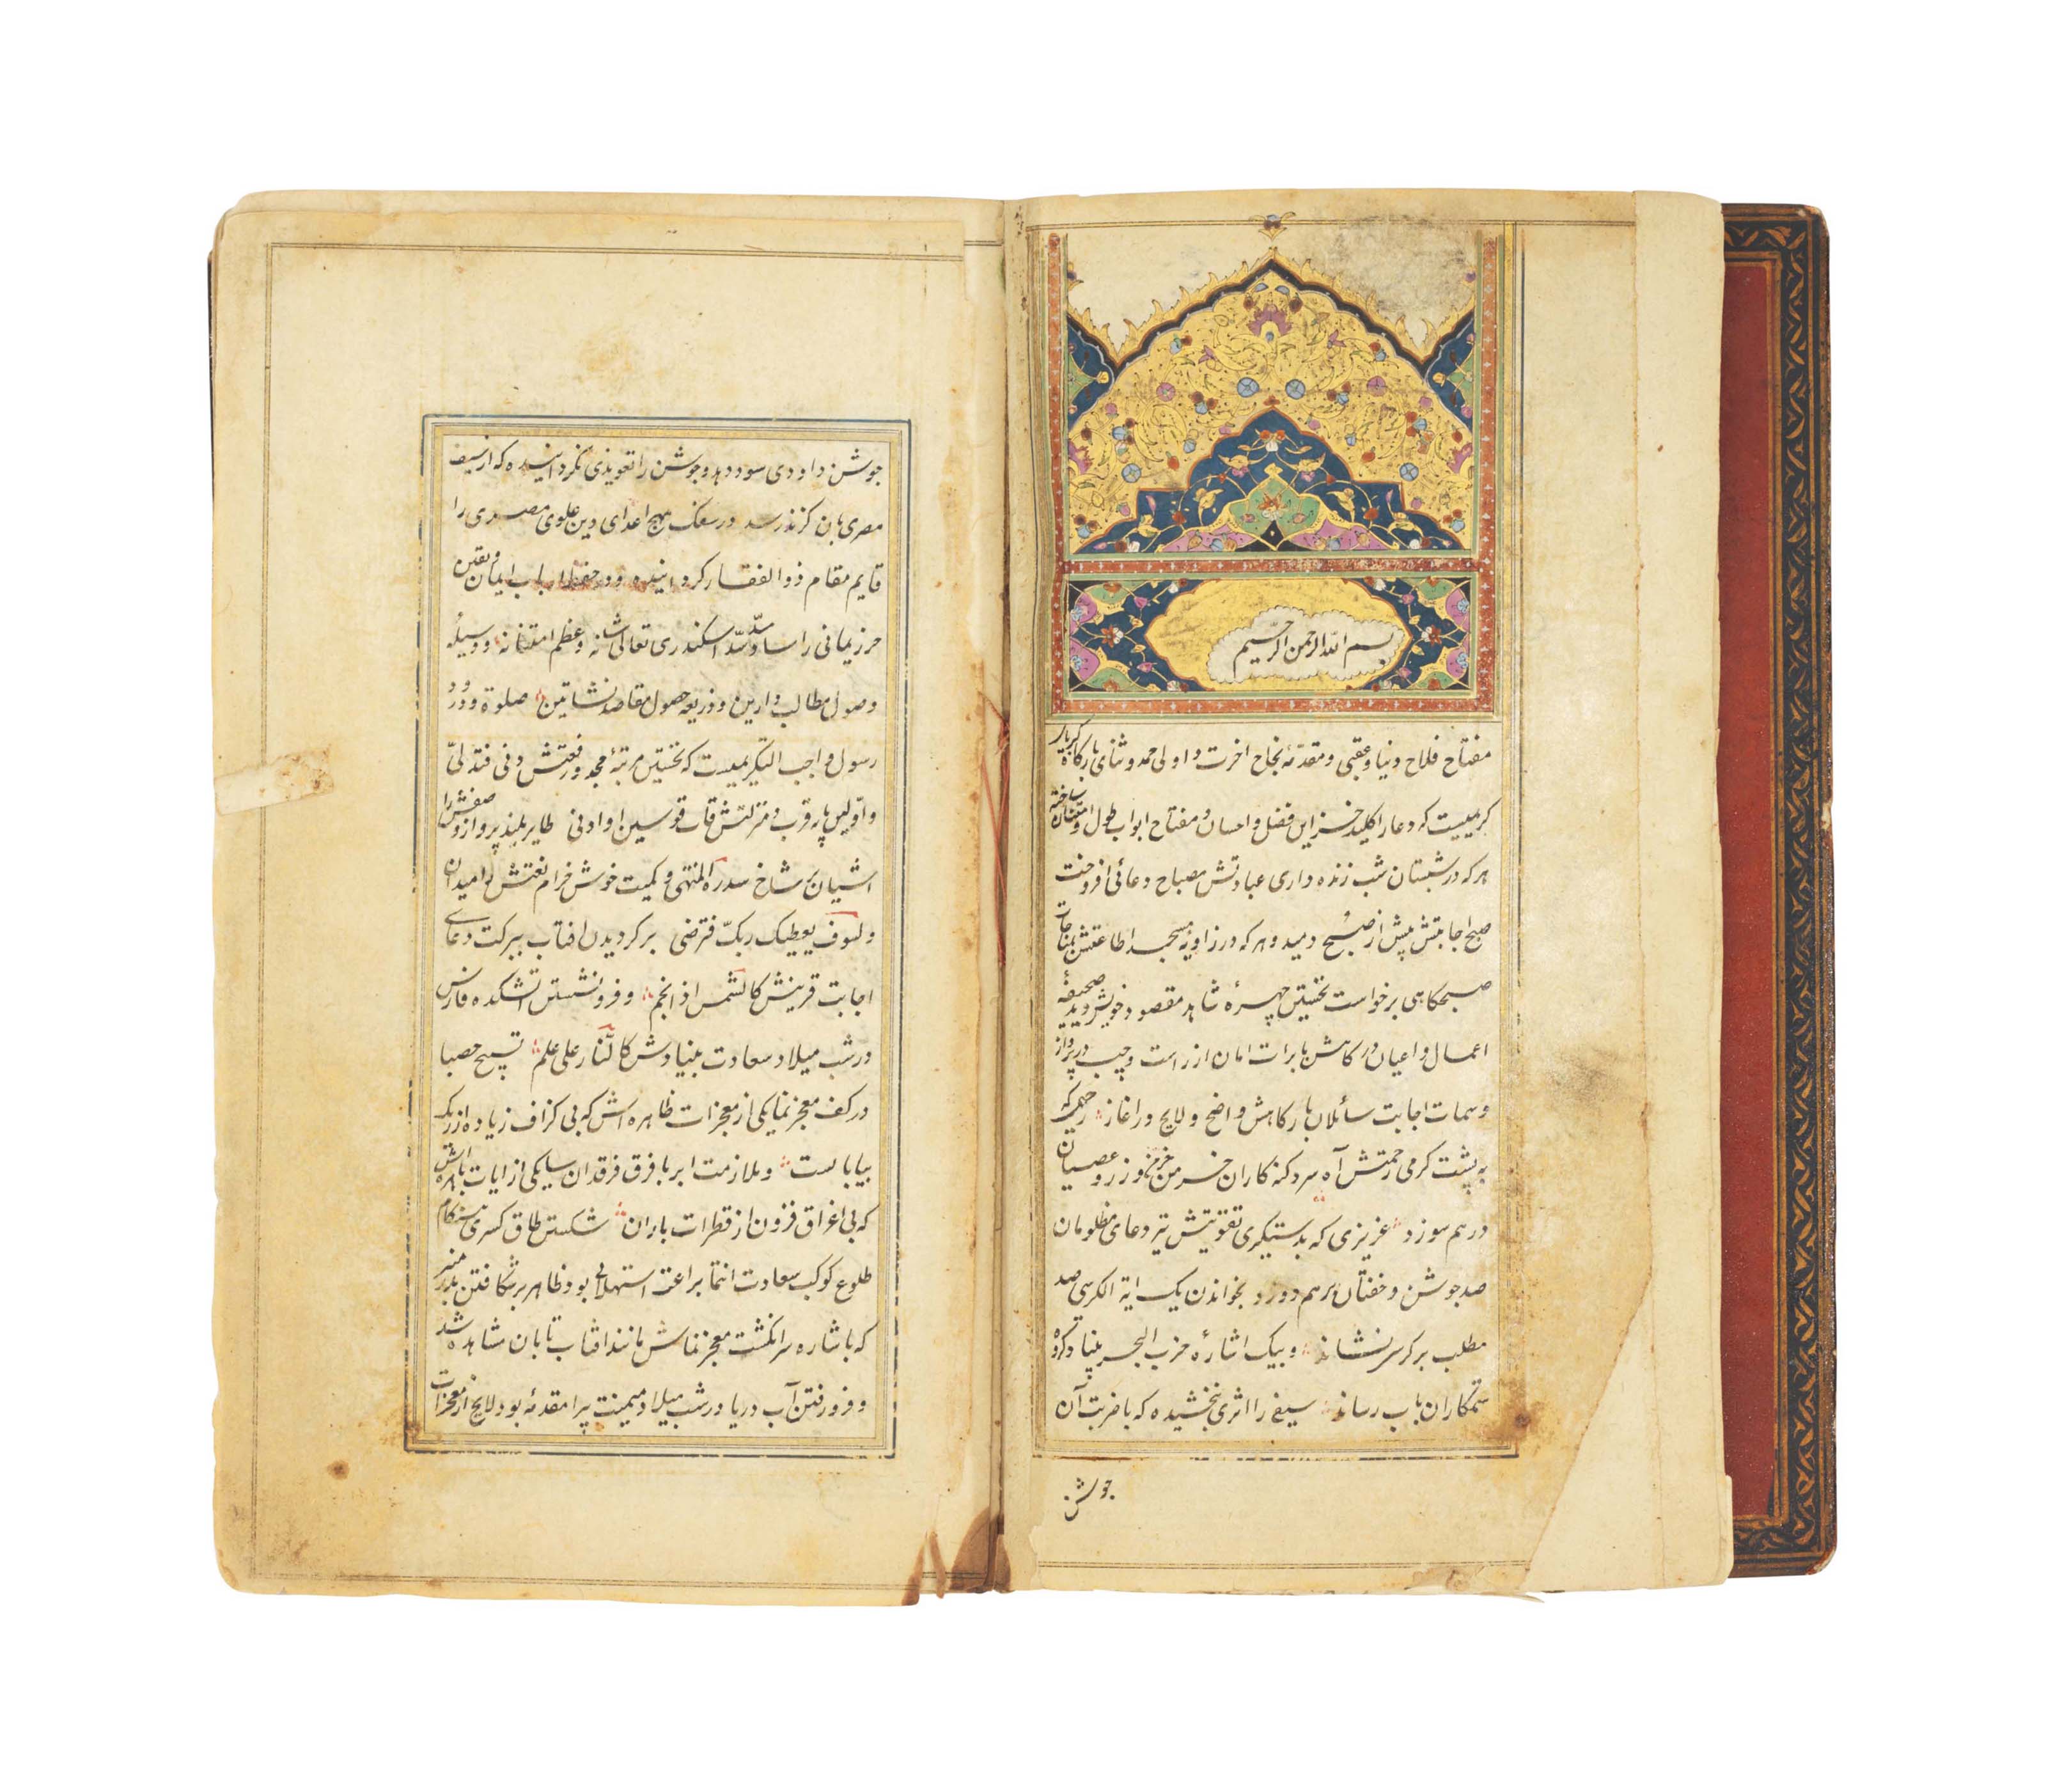 بسم الله الرحمن الرحیم
مفتاح فلاح دنیا و عقبی و مقدمهٔ نجاح اخرت و اولی حمد و ثنای بارکاه کبریا
کریمیست که دعا را کلید خزاین فضل و احسان و مفتاح ابواب طول و امتنان ساخته
هر که در شبستان شب زنده داری عبادتش مصباح دعائی افروخت
صبح اجابتش پیش از صبح دمید و هر که در زاویهٔ مسجد اطاعتش بمناجات
صبحکاهی برخواست نخستین چهرهٔ شاهد مقصود خویش دید صحیفهٔ
اعمال داعیان درکاهش با برات امان از راست و چپ در پرواز
وسمات اجابت سائلان بارکاهش واضح و لایح در اغاز رحیمی که
به پشت کرمی رحمتش آه سرد کنه کاران خرمن خرمن وزر و عصیان
در هم سوزد عزیزی که بدستیکری تقویتش تیر دعای مظلومان
صد جوشن و خفتان بر هم دوزد بخواندن یک ایة الکرسی صد
مطلب بر کرسی نشاند و بیک اشارهٔ حزب البحر بنیاد کروه
ستمکاران بآب رساند سیفی را اثری بخشیده که با ضربت آن
جوشن
جوشن داودی سود ندهد و جوشن را تعویذی کردانیده که از سیف
مصری بان کزند نرسد در سفک مهج اعدای دین علوی مصری را
قایم مقام ذو الفقار کردانیده و در حفظ ارباب ایمان و یقین
حرز یمانی را سد سد اسکندری تعالی شانه و عظم امتنانه و وسیلهٔ
وصول مطالب دارین و ذریعه حصول مقاصد نشاتین صلوة و درود
رسول واجب التکریمیست که نخستین مرتبهٔ مجد و رفعتش دنی فتدلیّ
و اوّلین پایه قرب و منزلتش قاب قوسین او ادنی طایر بلند پرواز وصفش را
اشیان بر شاخ سدرة المنتهی و کمیت خوش خرام نعتش را میدان
ولسوف یعطیک ربک فترضی برکردیدن افتاب ببرکت دعای
اجابت قرینش کالشمس اذ انجم و فرونشستن اتشکده فارس
در شب میلاد سعادت بنیادش کالنّار علی علم تسبیح حصبا
در کف معجز نما یکی از معجزات ظاهره اش که بی کزاف زیاده از ریک
بیابانست و ملازمت ابر با فرق فرقدان سا یکی از ایات باهره اش
که بی اغراق فزون از قطرات باران شکستن طاق کسری هنکام
طلوع کوکب سعادت انتما براعت استهلالی بود ظاهر بر شکافتن بدر منیر
که باشاره سرانکشت معجز نمایش مانند افتاب تابان مشاهده شد
و فرو رفتن آب دریا در شب میلاد میمنت پیرا مقدمهٔ بود لایح از معجزات